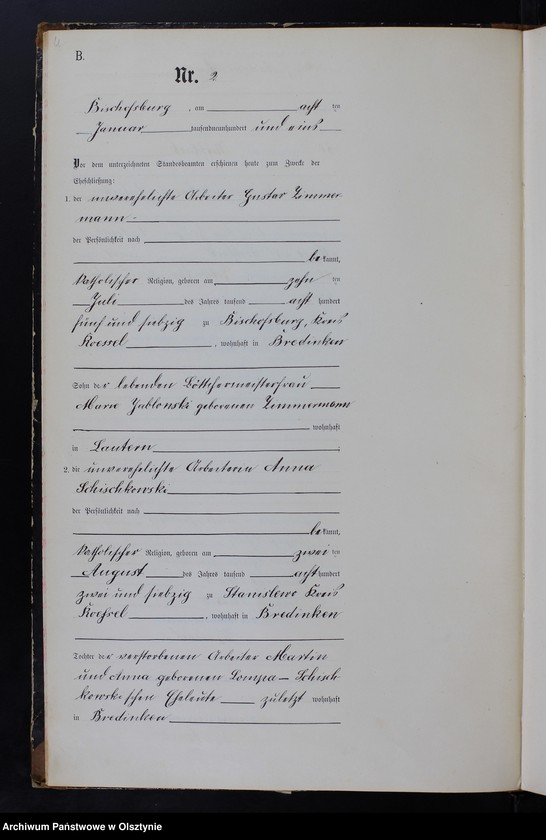 B.
Nr. 2
Bischofsburg, am acht ten
Januar tausendneunhundert und eins
Vor dem unterzeichneten Standesbeamten erschienen heute zum Zwecke der
Eheschließung:
1. der unverehelichte Arbeiter Gustav Zimmer
mann
der Persönlichkeit nach
bekannt,
katholischer Religion, geboren am zehn ten
Juli des Jahres tausend acht hundert
fünf und siebzig zu Bischofsburg, Kreis
Roessel, wohnhaft in Bredinken
Sohn der lebenden Böttchermeisterfrau
Marie Jablonski geborenen Zimmermann
wohnhaft
in Lautern;
2. die unverehelichte Arbeiterin Anna
Schischkowski
der Persönlichkeit nach
bekannt,
katholischer Religion, geboren am zwei ten
August des Jahres tausend acht hundert
zwei und siebzig zu Stanislewo Kreis
Roessel, wohnhaft in Bredinken
Tochter der verstorbenen Arbeiter Martin
und Anna geborenen Schisch
kowskischen Eheleute zuletzt wohnhaft
in Bredinken
Archiwum Państwowe w Olsztynie